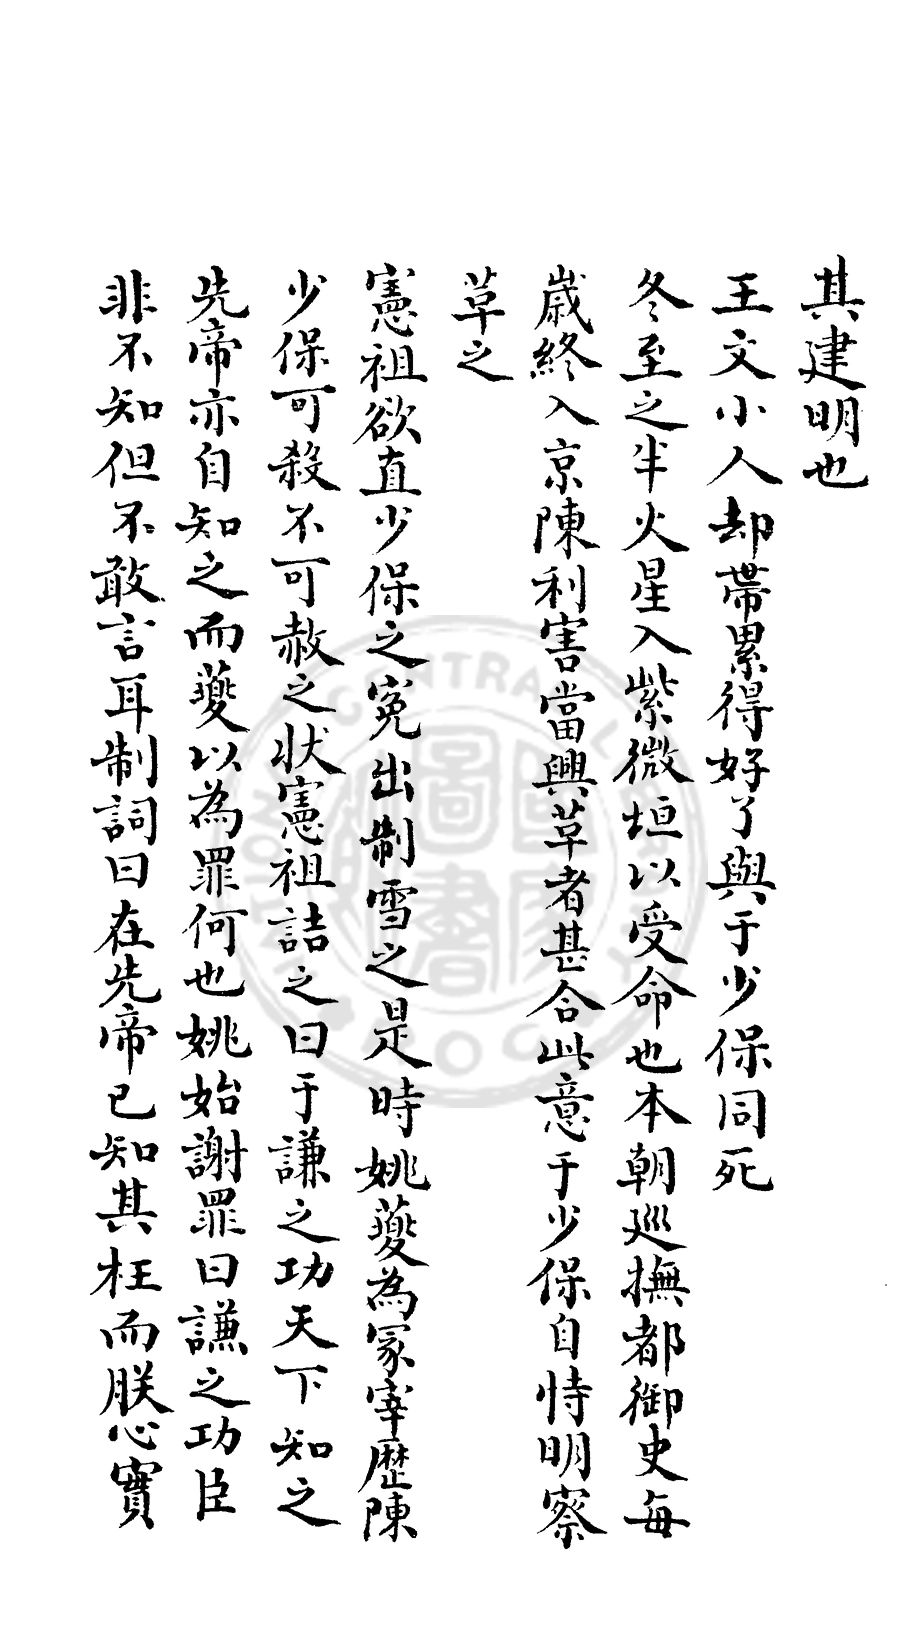 其建明也
王文小人却帶累得好了與于少保同死
冬至之半火星入紫微垣以受命也本朝巡撫都御史每
歲終入京陳利害當興革者甚合此意于少保自恃明察
革之
憲祖欲直少保之冤出制雪之是時姚夔為冢宰歷陳
少保可殺不可赦之狀憲祖詰之曰于謙之功天下知之
先帝亦自知之而夔以為罪何也姚始謝罪曰謙之功臣
非不知但不敢言耳制詞曰在先帝已知其枉而朕心實
CENTRAL LIBRARY
國家圖書